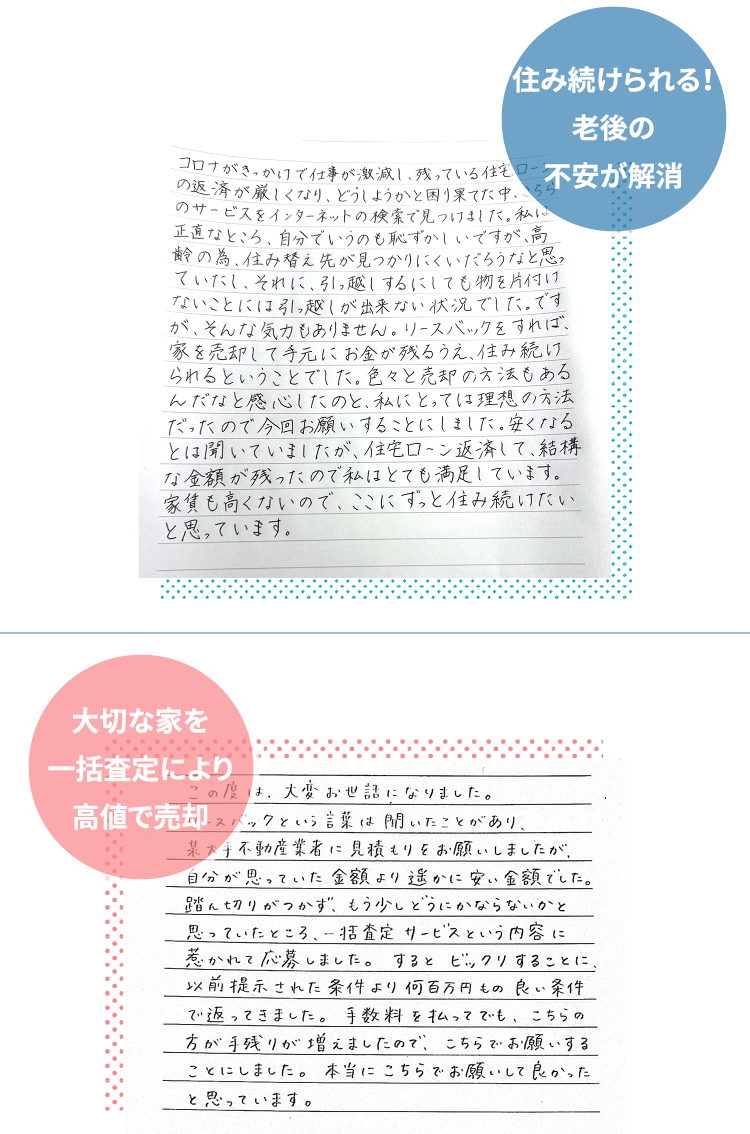 住み続けられる!
老後の
不安が解消
コロナがきっかけで仕事が激減し、残っている住宅ローン
の返済が厳しくなり、どうしようかと困り果てた中、こちら
のサービスをインターネットの検索で見つけました。私は
正直なところ、自分でいうのも恥ずかしいですが、高
齢の為、住み替え先が見つかりにくいだろうなと思っ
ていたし、それに、引っ越しするにしても物を片付け
ないことには引っ越しが出来ない状況でした。です
が、そんな気力もありません。リースバックをすれば、
家を売却して手元にお金が残るうえ、住み続け
られるということでした。色々と売却の方法もある
んだなと感心したのと、私にとっては理想の方法
だったので今回お願いすることにしました。安くなる
とは聞いていましたが、住宅ローン返済して、結構
な金額が残ったので私はとても満足しています。
家賃も高くないので、ここにずっと住み続けたい
と思っています。
大切な家を
一括査定により
高値で売却
この度は、大変お世話になりました。
リースバックという言葉は聞いたことがあり、
某大手不動産業者に見積もりをお願いしましたが、
自分が思っていた金額より遥かに安い金額でした。
踏ん切りがつかず、もう少しどうにかならないかと
思っていたところ、一括査定サービスという内容に
惹かれて応募しました。するとビックリすることに、
以前提示された条件より何百万円もの良い条件
で返ってきました。手数料を払ってでも、こちらの
方が手残りが増えましたので、こちらでお願いする
ことにしました。本当にこちらでお願いして良かった
と思っています。